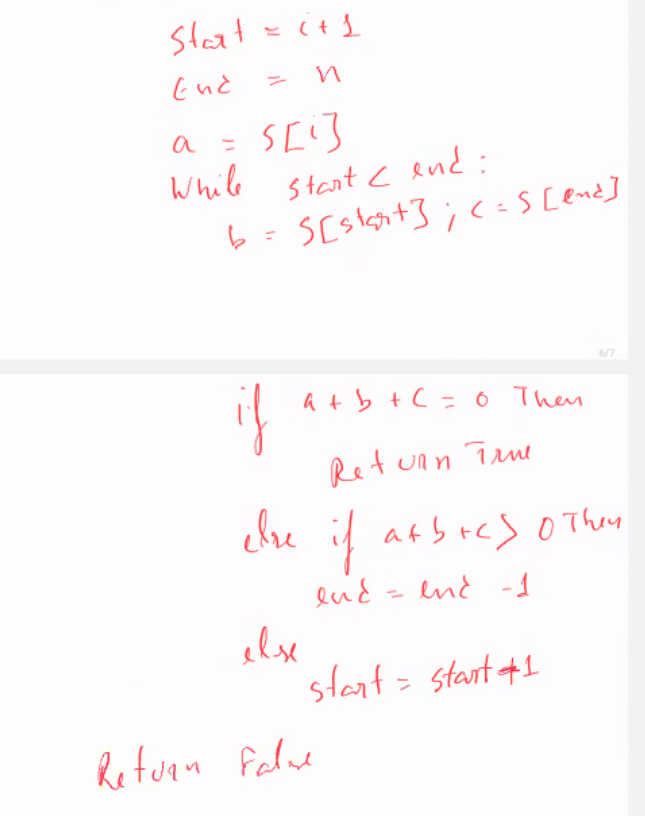 start = i+1
End = n
a = S[i]
While start < end:
b = S[start]; c = S[end]
6/7
if a + b + c = 0 Then
Return True
else if a+b+c > 0 Then
end = end -1
else
start = start+1
Return False